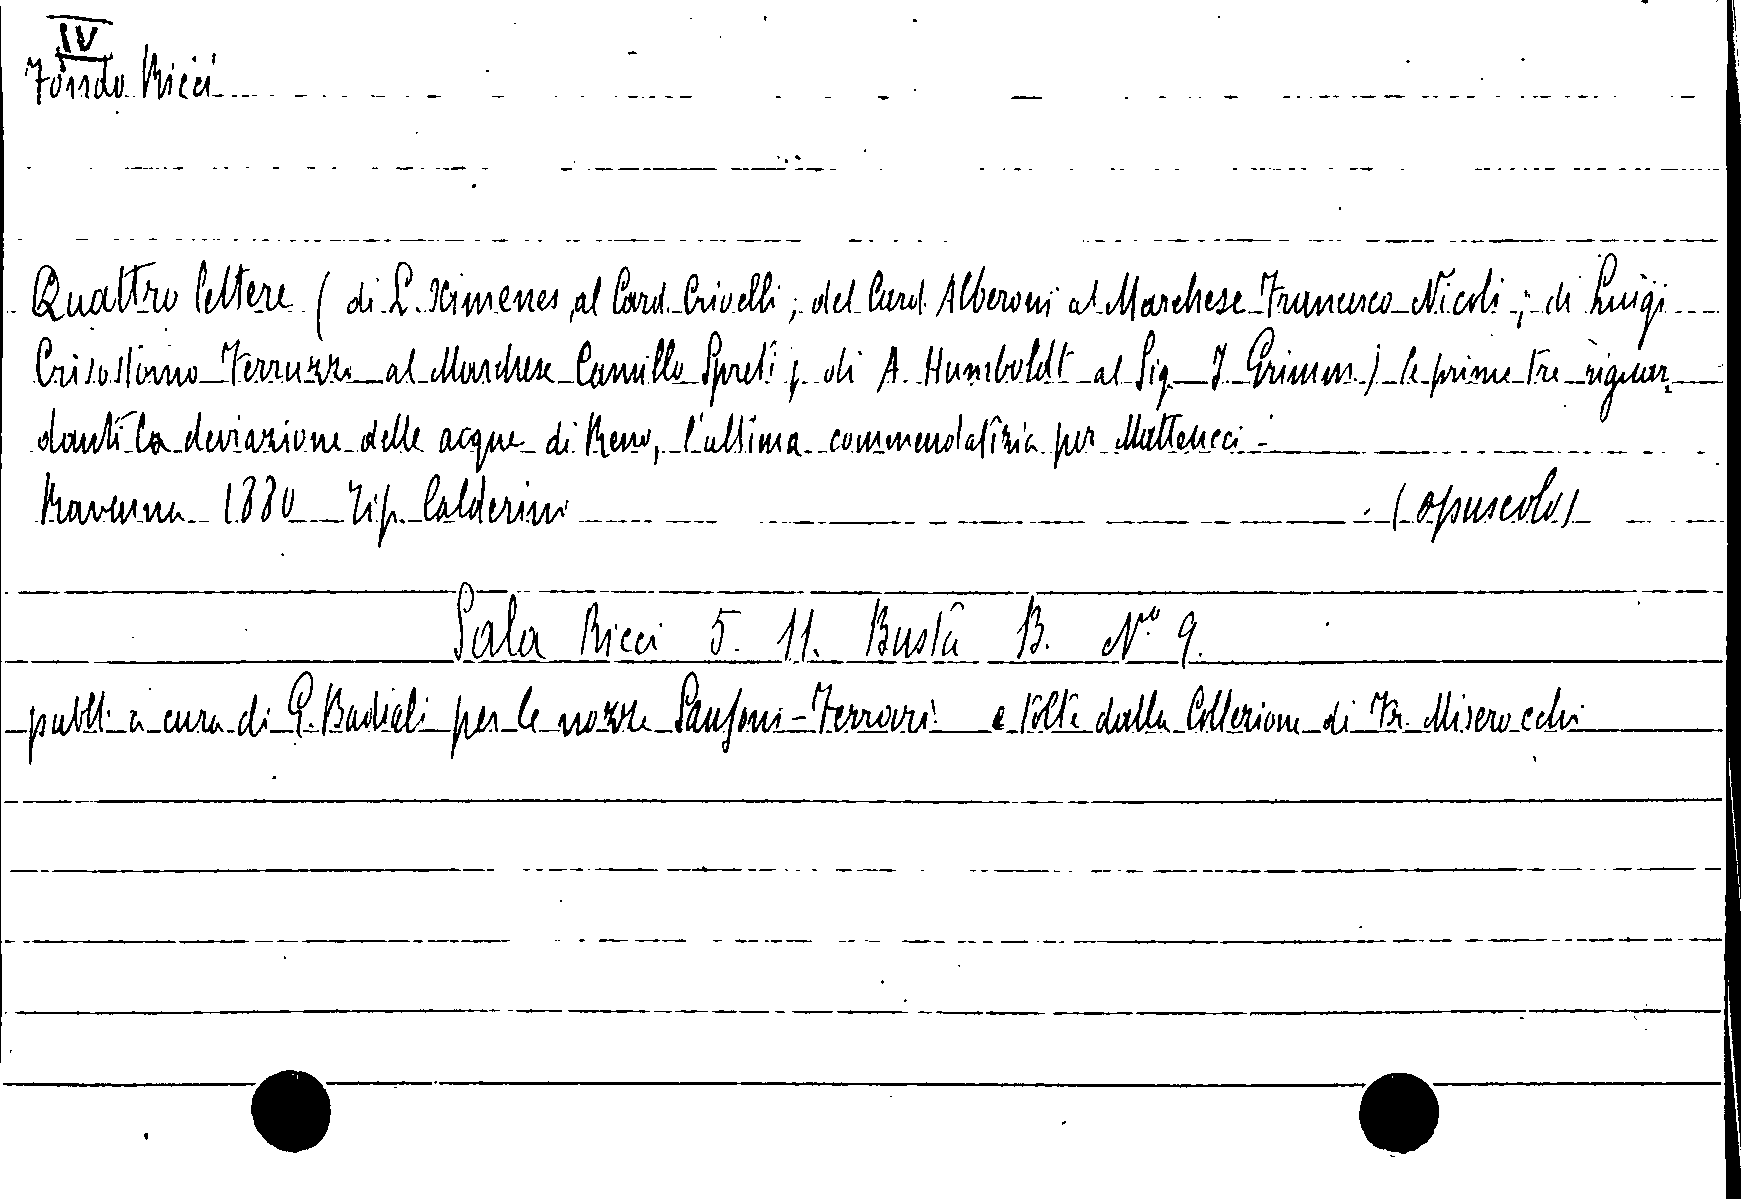 IV
Fondo Ricci
Quattro lettere ( di L. Ximenes al Card. Crivelli ; del Card. Alberoni al Marchese Francesco Nicoli ; di Luigi
Crisostomo Ferruzzi al Marchese Camillo Spreti ; di A. Humboldt al Sig. J. Grimm ) le prime tre riguar-
danti la deviazione delle acque di Reno, l'ultima commendatizia per Matteucci -
Ravenna 1880 Tip. Calderini (opuscolo)
Sala Ricci 5. 11. Busta B. No 9.
pubbl. a cura di G. Badiali per le nozze Sanfoni-Ferrari e tolte dalla Collezione di Fr. Miserocchi